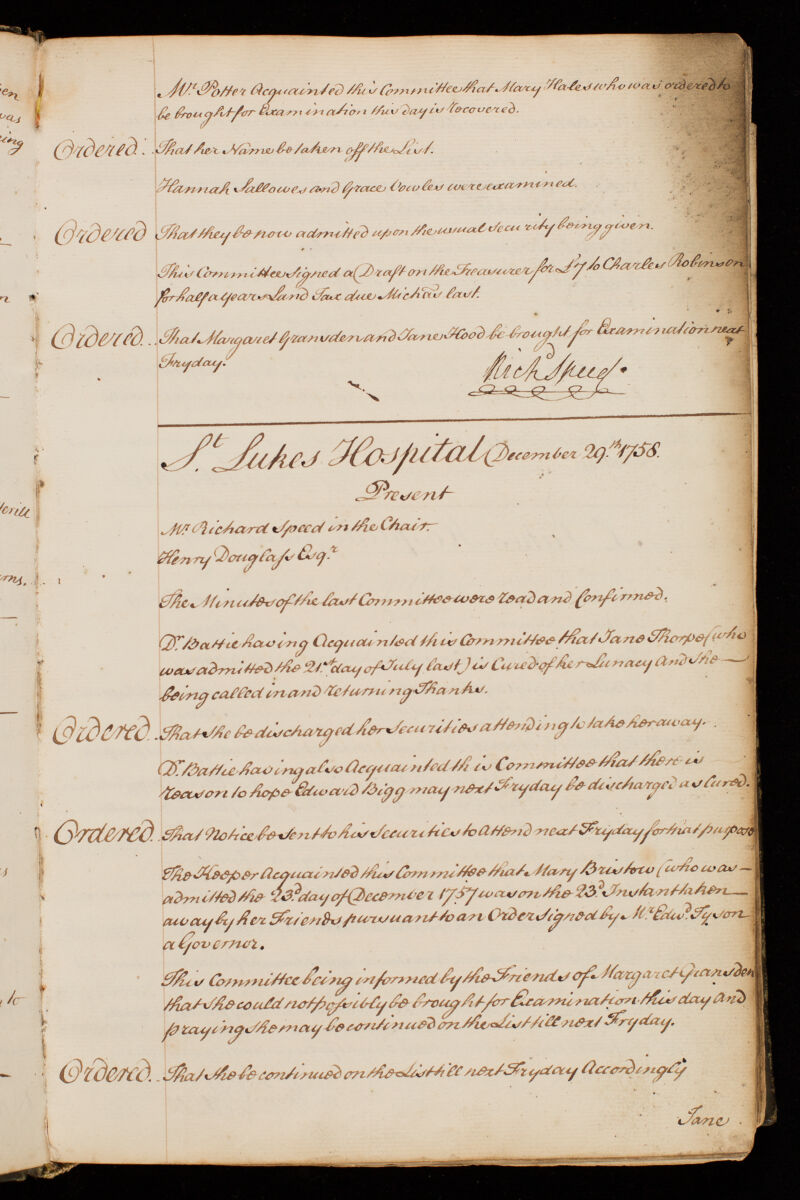 en
was
ing
n
verill
rns,
s
to
Mr. Potter Acquainted this Committee that Mary Hales who was ordered to
be brought for Examination this day is recovered.
Ordered. That her Name be taken off the List.
Hannah Sallowes and Grace Cowles were examined.
Ordered That they be now admitted upon the usual Security being given.
This Committee signed a Draft on the Treasurer for £7 to Charles Robinson
for half a years Land Tax due Michas. last.
Ordered.. That Margaret Gransden and Jane Hood be brought for Examination next
Fryday.
Richd Speed.
St. Lukes Hospital December 29.th 1758.
Present
Mr. Richard Speed in the Chair.
Henry Douglass Esqr.
The Minutes of the last Committee were read and Confirmed.
Dr. Battie having Acquainted this Committee that Jane Thorpe (who
was admitted the 21.st day of July last) is Cured of her Lunacy And she —
being called in and returning Thanks.
Ordered. That she be discharged her Securities attending to take her away.
Dr. Battie having also Acquainted this Committee that there is
reason to hope Edward Bigg may next Fryday be discharged as Cured.
Ordered. That Notice be sent to his Securities to Attend next Fryday for that purpose
The Keeper Acquainted this Committee that Mary Bristow (who was —
admitted the 23.d day of December 1757 was on the 23.d Instant taken —
away by her Friends pursuant to an Order signed by Mr. Edwd. Tyson
a Governor.
This Committee being informed by the Friends of Margaret Gransden
that she could not possibly be brought for Examination this day And
praying she may be continued on the List till next Fryday.
Ordered. That she be continued on the List till next Fryday Accordingly
Jane